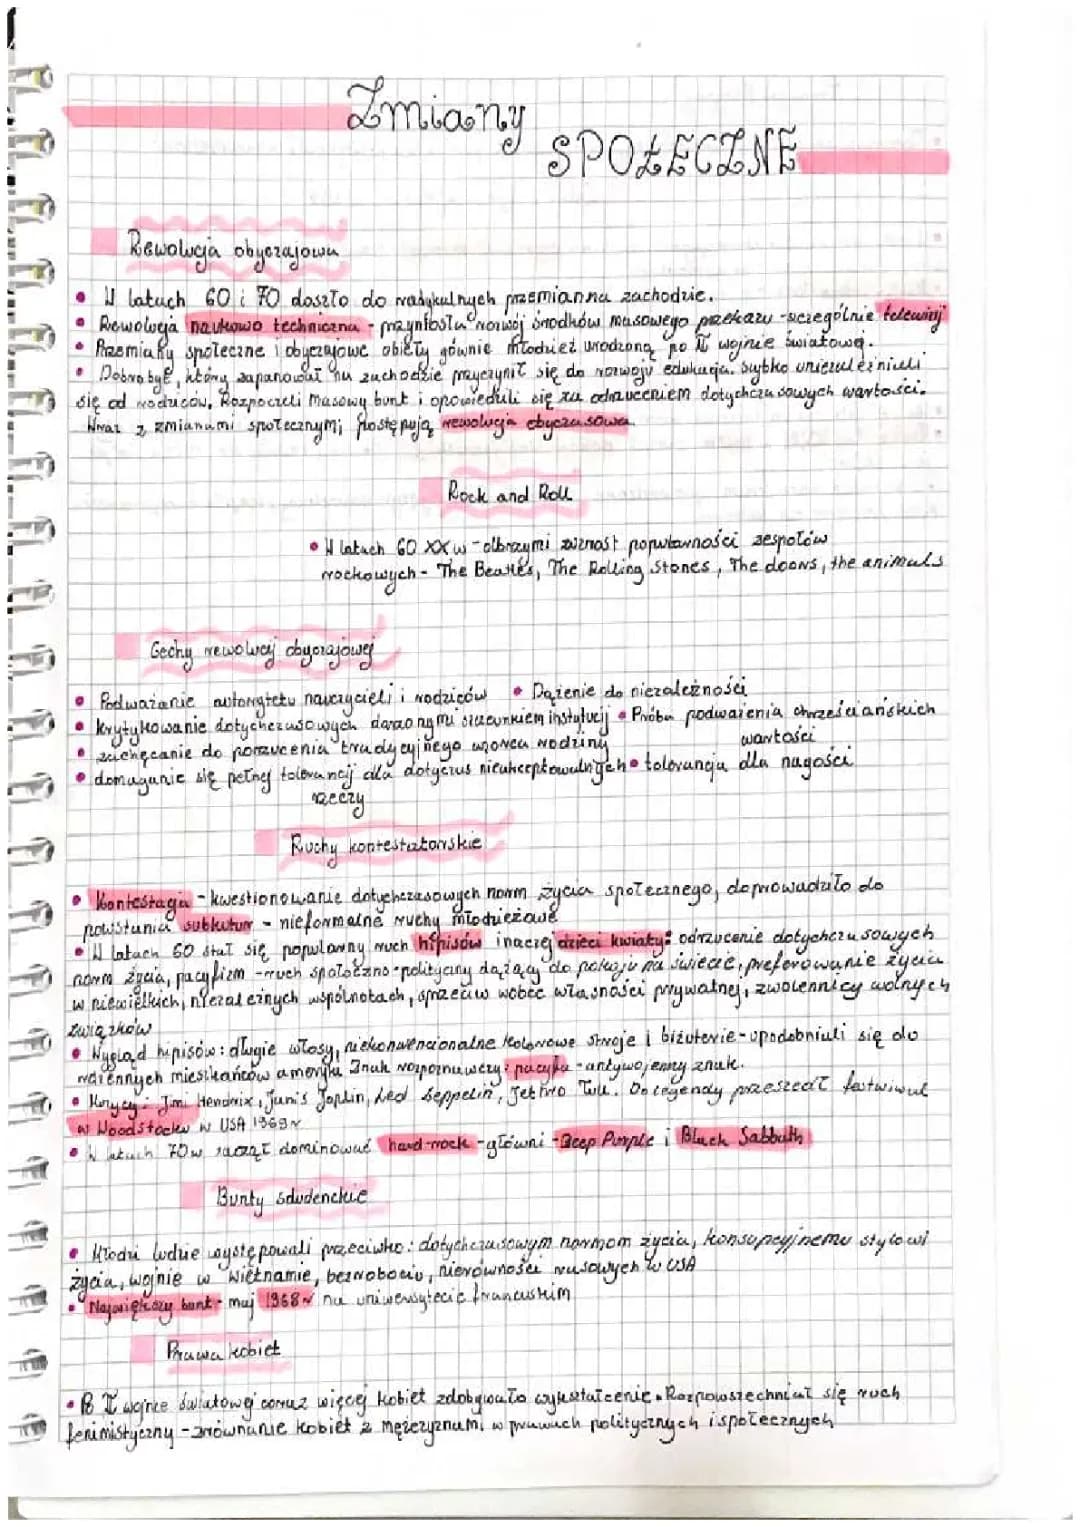 Zmiany
SPOŁECZNE
Rewolucja obyczajowa
• W latach 60 i 70 doszło do radykalnych przemian na zachodzie.
• Rewolucja naukowo techniczna - przyniosła rozwój środków masowego przekazu - szczególnie telewizji
• Przemiany społeczne i obyczajowe objęły głównie młodzież urodzoną po II wojnie światową.
• Dobrobyt, który zapanował na zachodzie przyczynił się do rozwoju edukacja. Szybko uniezależnili
się od rodziców. Rozpoczeli masowy bunt i opowiedzili się za odrzuceniem dotychczasowych wartości.
Wraz z zmianami społecznymi postępują rewolucja obyczasowa
Rock and Roll
• W latach 60 XX w - olbrzymi wzrost popularności zespołów
rockowych - The Beatles, The Rolling Stones, The doors, the animals
Cechy rewolucji obyczajowej
• Podważanie autorytetu nauczycieli i rodziców • Dążenie do niezależności
• krytykowanie dotychczasowych darzonymi szacunkiem instytucji • Próba podważenia chrześciańskich
wartości
• zachęcanie do porzucenia tradycyjnego wzorca rodziny
• domaganie się pełnej tolerancji dla dotyczas nieakceptowalnych • tolerancja dla nagości
rzeczy
Ruchy kontestatorskie
• Kontestacja - kwestionowanie dotychczasowych norm życia społecznego, doprowadziło do
powstania subkultur - nieformalne ruchy młodzieżowe
• W latach 60 stał się popularny ruch hipisów inaczej dzieci kwiaty: odrzucenie dotychczasowych
norm życia, pacyfizm - ruch społeczno-polityczny dążący do pokoju na świecie, preferowanie życia
w niewielkich, niezależnych wspólnotach, sprzeciw wobec własności prywatnej, zwolennicy wolnych
związków
• Wygląd hipisów: długie włosy, niekonwencionalne kolorowe stroje i biżuterie - upodobniali się do
rdzennych mieszkańców ameryki Znak rozpoznawczy: pacyfka - antywojenny znak.
Jimi Hendrix, Janis Joplin, Led Zeppelin, Jethro Tull. Do legendy przeszedł festwiwal
w Woodstocku w USA 1969r
• W latach 70w zaczął dominować hard-rock - główni - Deep Purple i Black Sabbath
Bunty sdudenckie
• Młodzi ludzie występowali przeciwko: dotychczasowym normom życia, konsupcyjnemu stylowi
życia, wojnie w Wietnamie, bezrobociu, nierówności rasowych w USA
• Największy bunt - maj 1968r na uniwersytecie francuskim
Prawa kobiet
• Po II wojnie światowej coraz więcej kobiet zdobywało wykształcenie. Rozpowszechniał się ruch
feministyczny - zrównanie kobiet z mężczyznami w prawach politycznych i społecznych